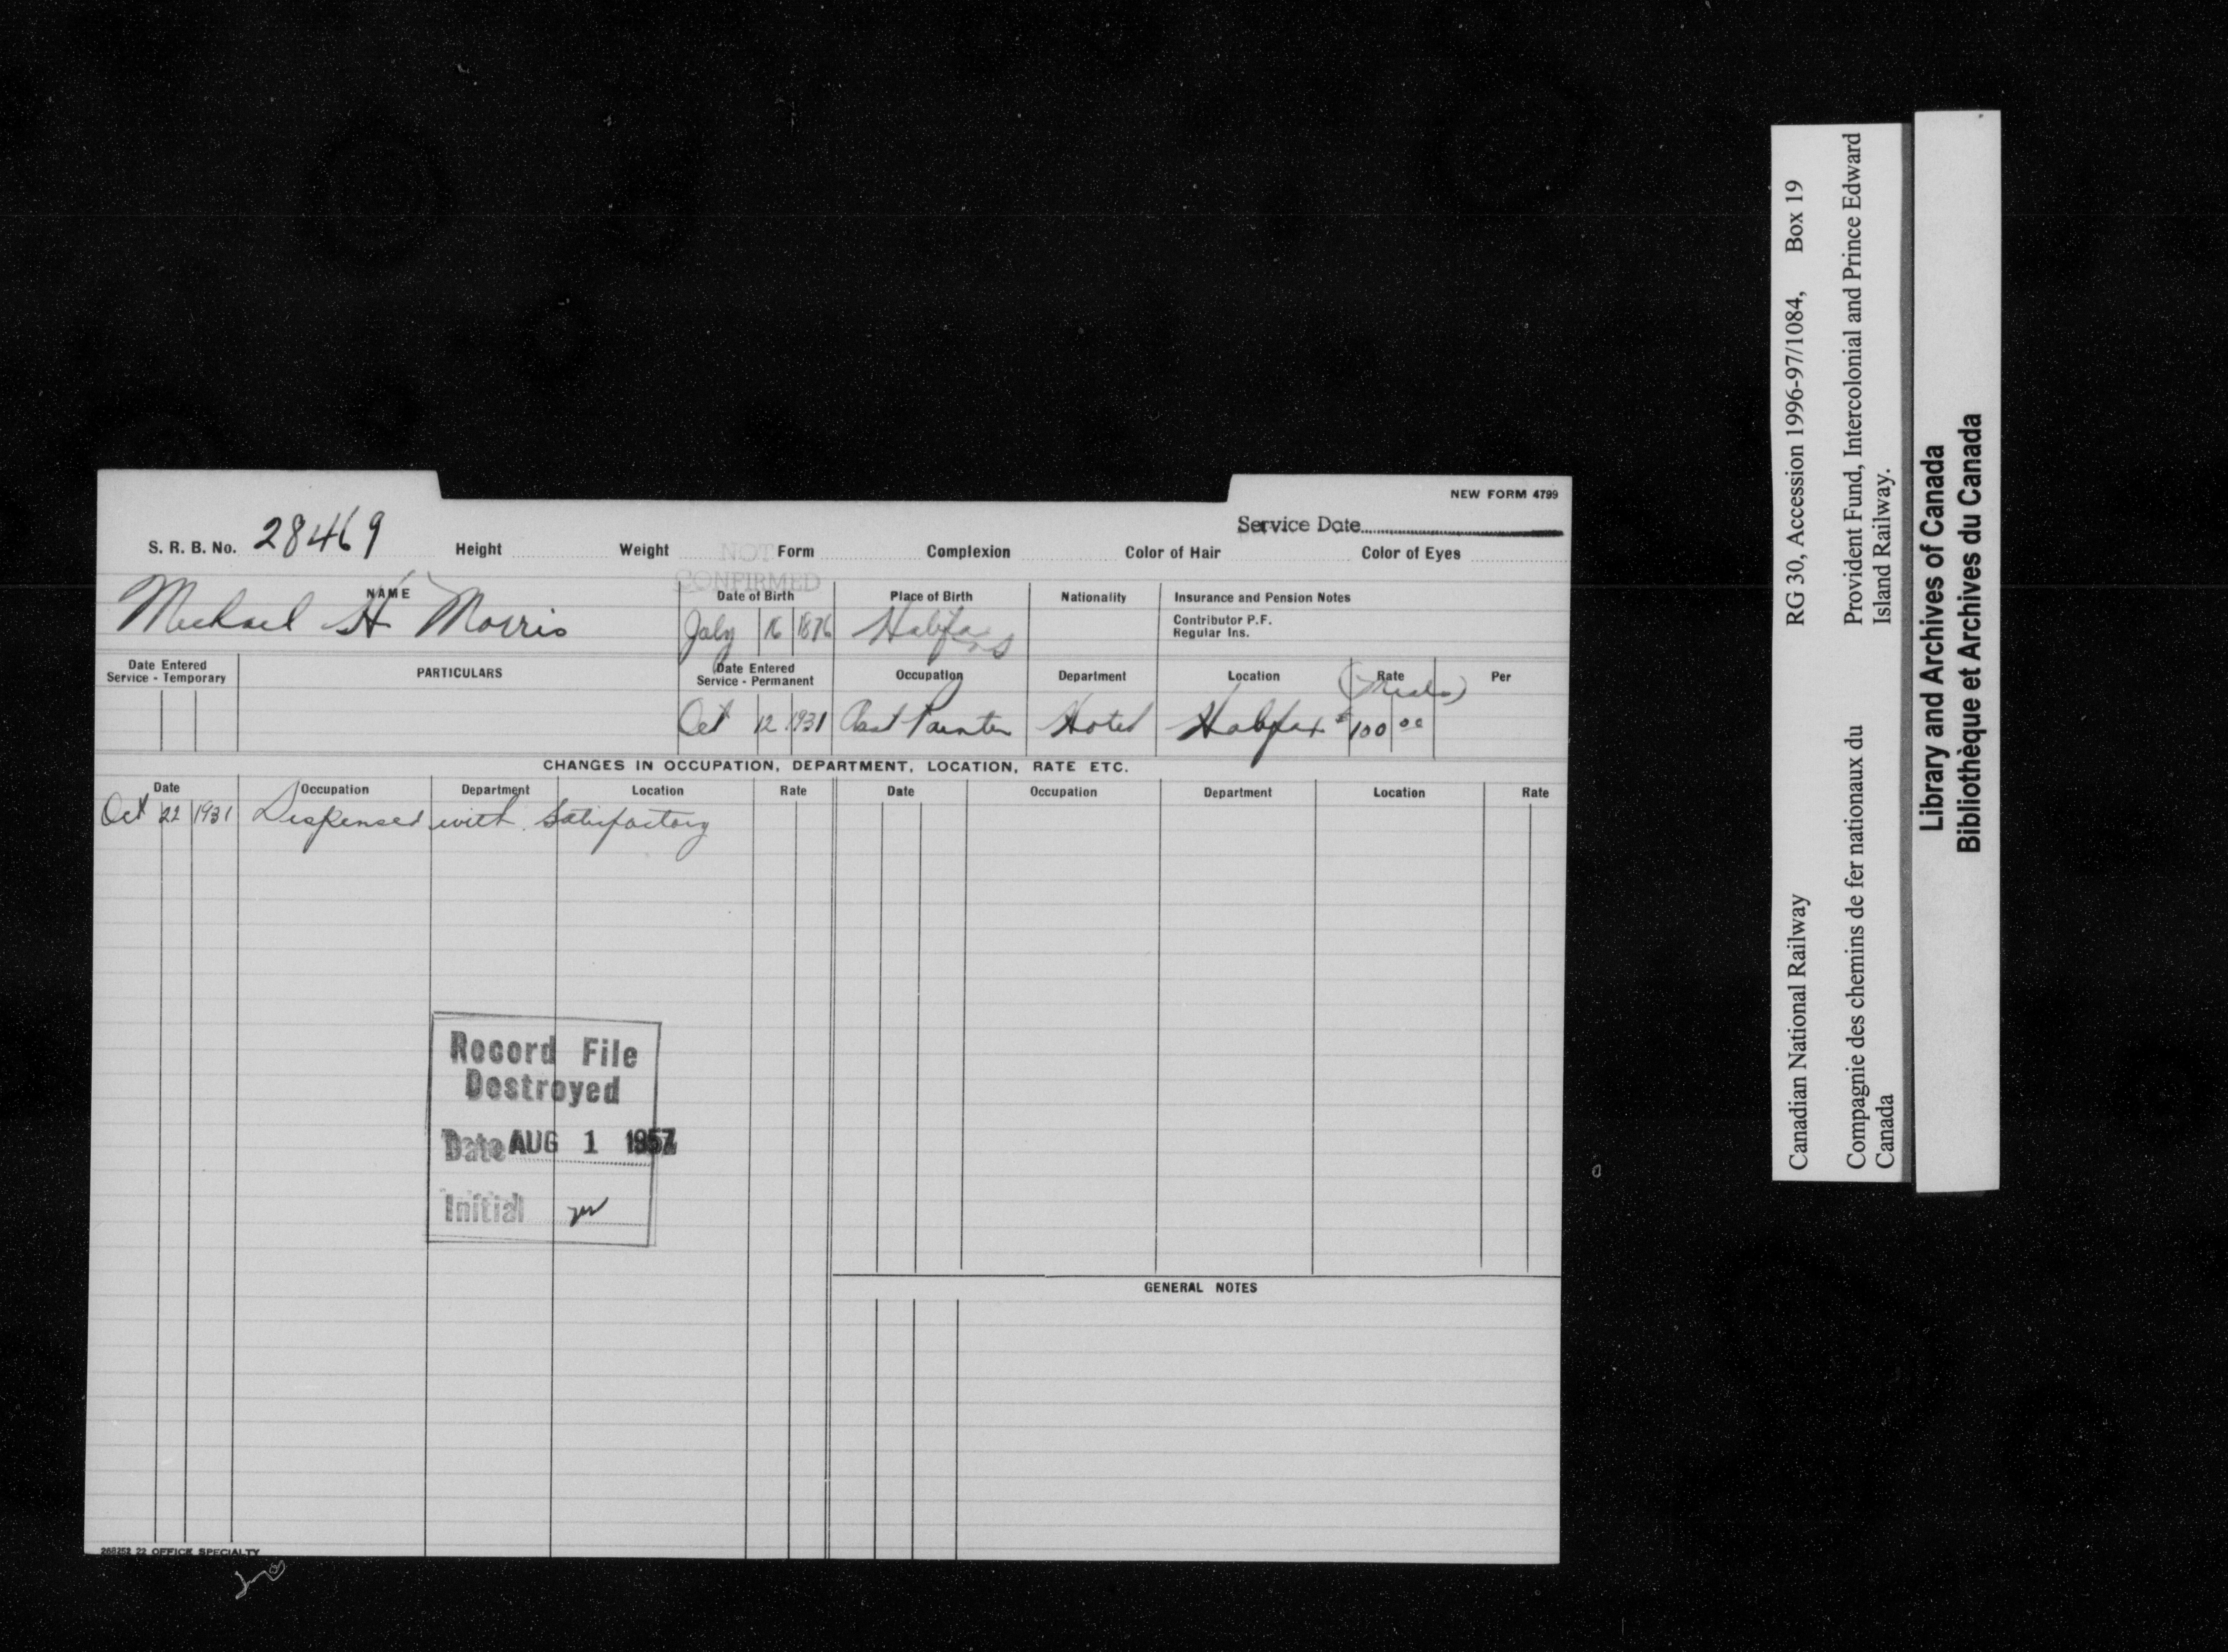 NEW FORM 4799
Service Date
S. R. B. No. 28469 Height Weight Form Complexion Color of Hair Color of Eyes
NOT
CONFIRMED
NAME Date of Birth Place of Birth Nationality Insurance and Pension Notes
Contributor P.F.
Regular Ins.
Michael H Morris July 16 1876 Halifax
NS
Date Entered
Service - Temporary
PARTICULARS
Date Entered
Service - Permanent
Occupation Department Location Rate Per
(Meals)
Oct 12 1931 Painter Hotel Halifax $100 00
CHANGES IN OCCUPATION, DEPARTMENT, LOCATION, RATE ETC.
Date Occupation Department Location Rate Date Occupation Department Location Rate
Oct 22 1931 Dispensed with Satisfactory
Record File
Destroyed
Date AUG 1 1957
Initial
GENERAL NOTES
268252 22 OFFICE SPECIALTY
Canadian National Railway RG 30, Accession 1996-97/1084, Box 19
Compagnie des chemins de fer nationaux du Provident Fund, Intercolonial and Prince Edward
Canada Island Railway.
Library and Archives of Canada
Bibliothèque et Archives du Canada